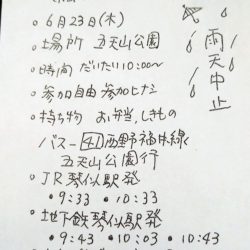 ・6月23日(木)
・場所 五天山公園
・時間 だいたい10:00〜
・参加自由 参加ヒナシ
・持ち物 お弁当、しきもの
バス— 41 西野福井線
五天山公園行
・JR琴似駅発
・9:33 ・10:33
・地下鉄琴似駅発
・9:43 ・10:03 ・10:43
雨天中止